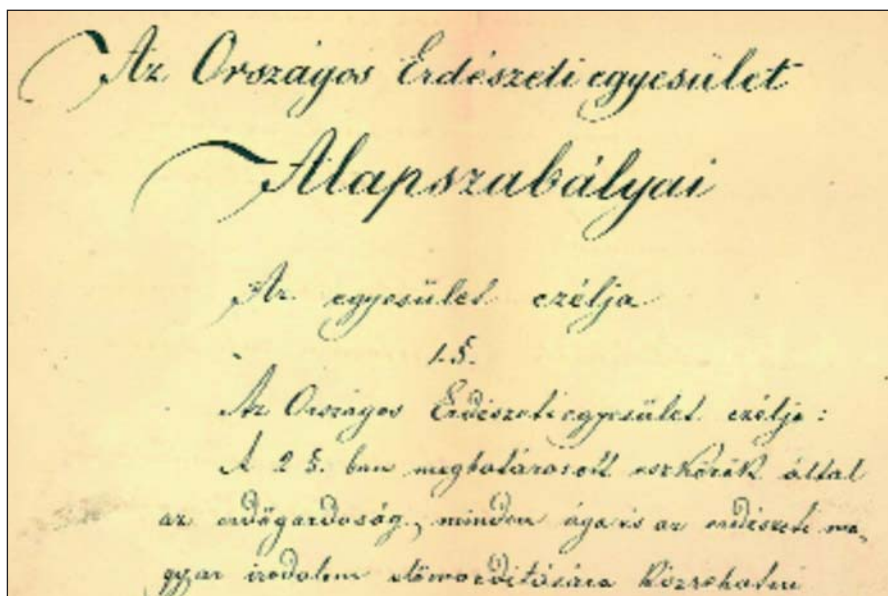 Az Országos Erdészeti egyesület
Alapszabályai
Az egyesület czélja
1. §.
Az Országos Erdészeti egyesület czélja:
A 2 §. ban meghatározott eszközök által
az erdőgazdaság, minden ága és az erdészeti ma„
gyar irodalom előmozdítására közrehatni